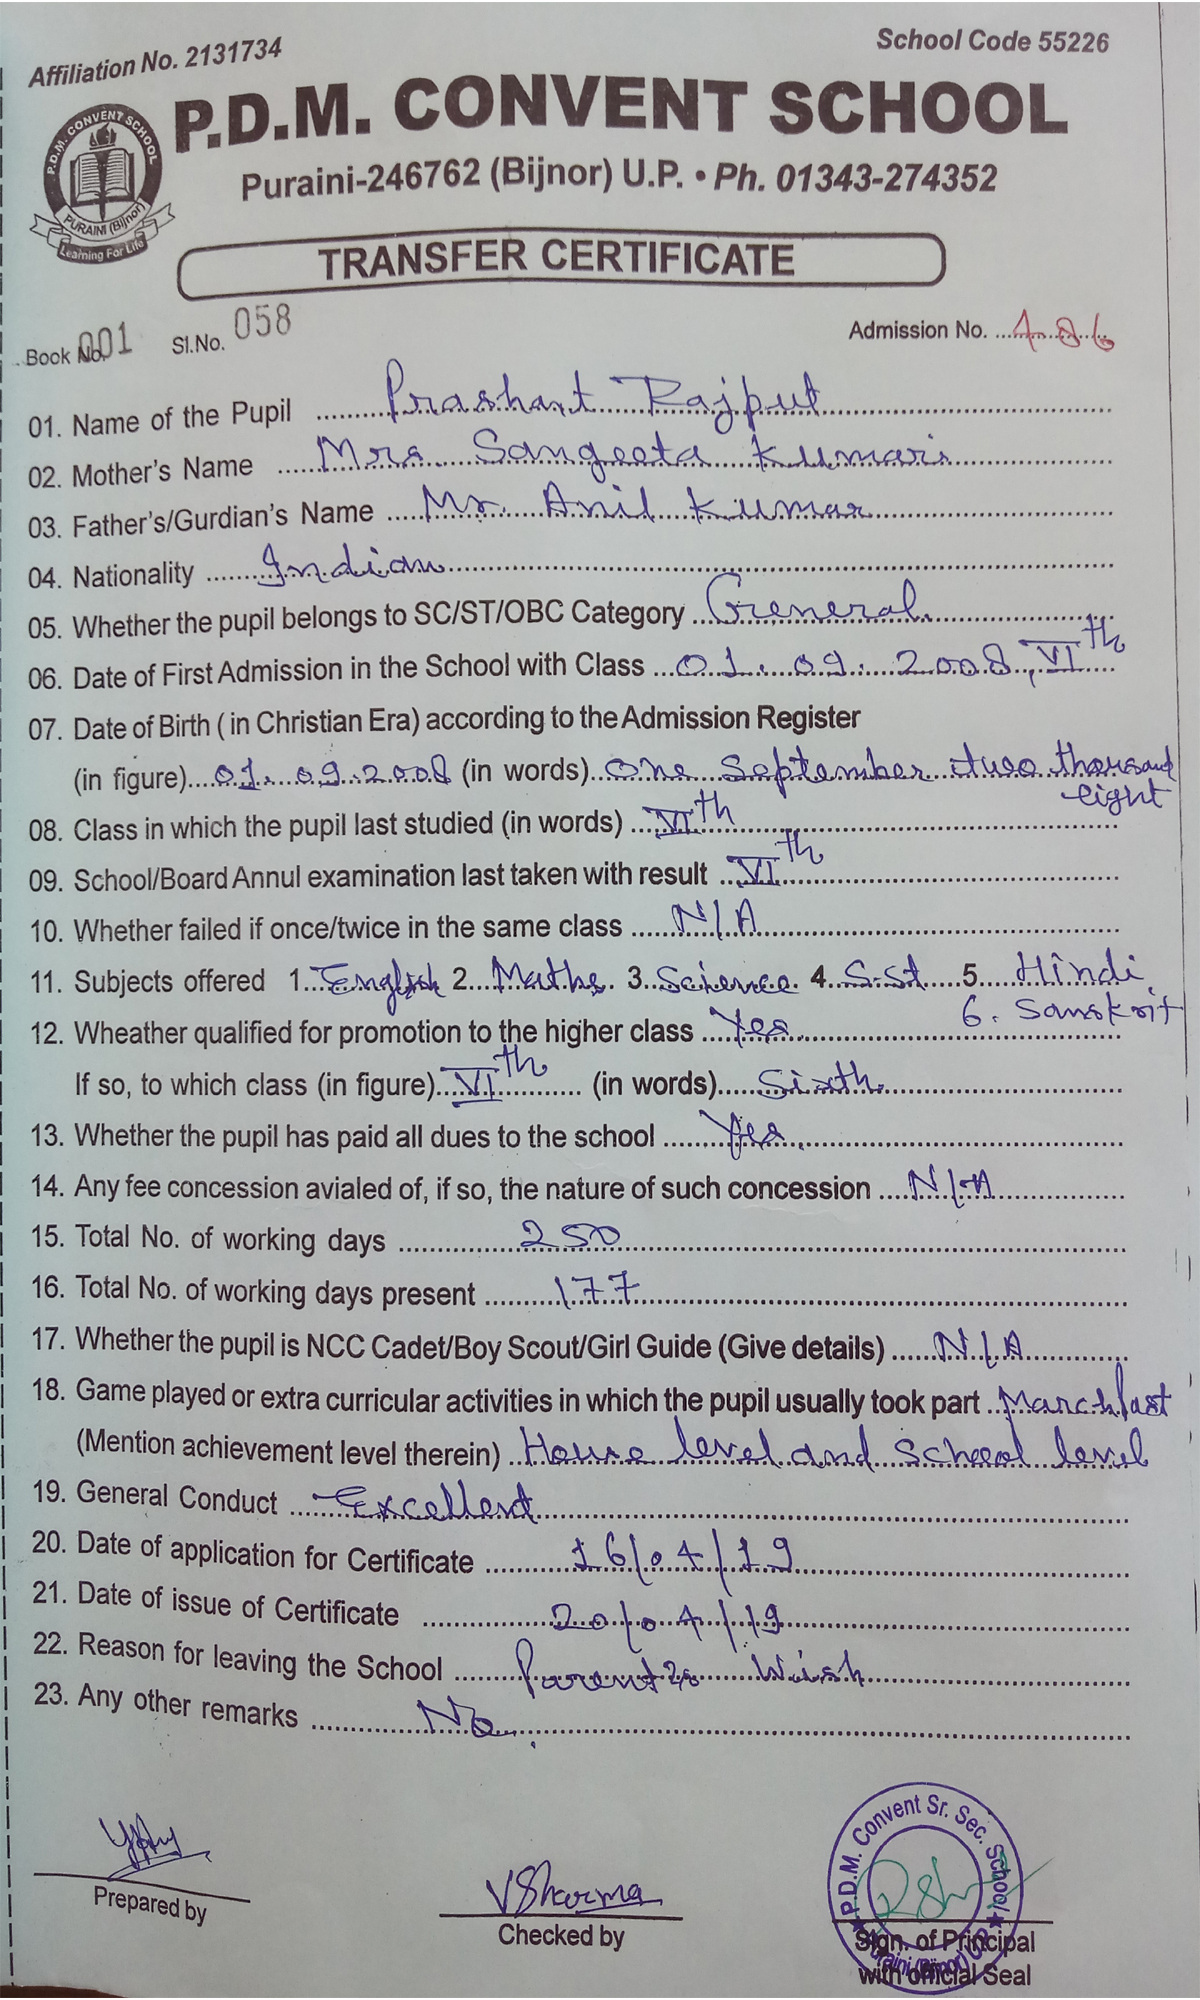 Affiliation No. 2131734
School Code 55226
P.D.M. CONVENT SCHOOL
PURAINI (Bijnor)
Learning For Life
P.D.M. CONVENT SCHOOL
Puraini-246762 (Bijnor) U.P. • Ph. 01343-274352
TRANSFER CERTIFICATE
Book No. 001 Sl.No. 058
Admission No. 486
01. Name of the Pupil Prashant Rajput
02. Mother's Name Mrs. Sangeeta Kumari
03. Father's/Gurdian's Name Mr. Anil Kumar
04. Nationality Indian
05. Whether the pupil belongs to SC/ST/OBC Category General
06. Date of First Admission in the School with Class 01.09.2008, VIth
07. Date of Birth ( in Christian Era) according to the Admission Register
(in figure) 01.09.2008 (in words) One September two thousand
eight
08. Class in which the pupil last studied (in words) VIth
09. School/Board Annul examination last taken with result VIth
10. Whether failed if once/twice in the same class N/A
11. Subjects offered 1. English 2. Maths 3. Science 4. S.St 5. Hindi
6. Sanskrit
12. Wheather qualified for promotion to the higher class Yes
If so, to which class (in figure) VIth (in words) Sixth
13. Whether the pupil has paid all dues to the school Yes
14. Any fee concession avialed of, if so, the nature of such concession N/A
15. Total No. of working days 250
16. Total No. of working days present 177
17. Whether the pupil is NCC Cadet/Boy Scout/Girl Guide (Give details) N/A
18. Game played or extra curricular activities in which the pupil usually took part March past
(Mention achievement level therein) House level and School level
19. General Conduct Excellent
20. Date of application for Certificate 16/04/19
21. Date of issue of Certificate 20/04/19
22. Reason for leaving the School Parent's Wish
23. Any other remarks No.
Prepared by
VSharma
Checked by
P.D.M. Convent Sr. Sec. School
Puraini (Bijnor) U.P.
Sign. of Principal
with official Seal